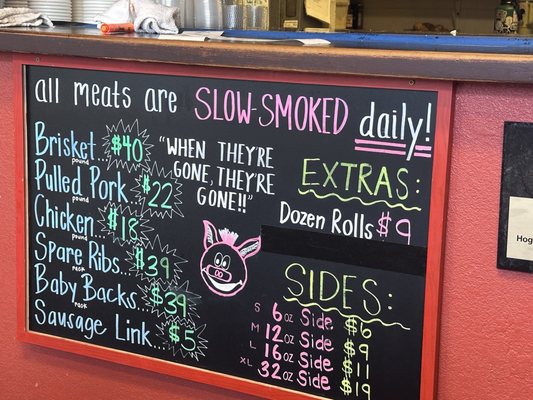 all meats are SLOW-SMOKED daily!
Brisket... $40
pound
Pulled Pork.. $22
pound
Chicken... $18
pound
Spare Ribs... $39
rack
Baby Backs... $39
rack
Sausage Link... $5
"WHEN THEY'RE
GONE, THEY'RE
GONE!!"
EXTRAS:
Dozen Rolls $9
SIDES:
S 6oz Side $6
M 12oz Side $9
L 16oz Side $11
XL 32oz Side $19
Hog